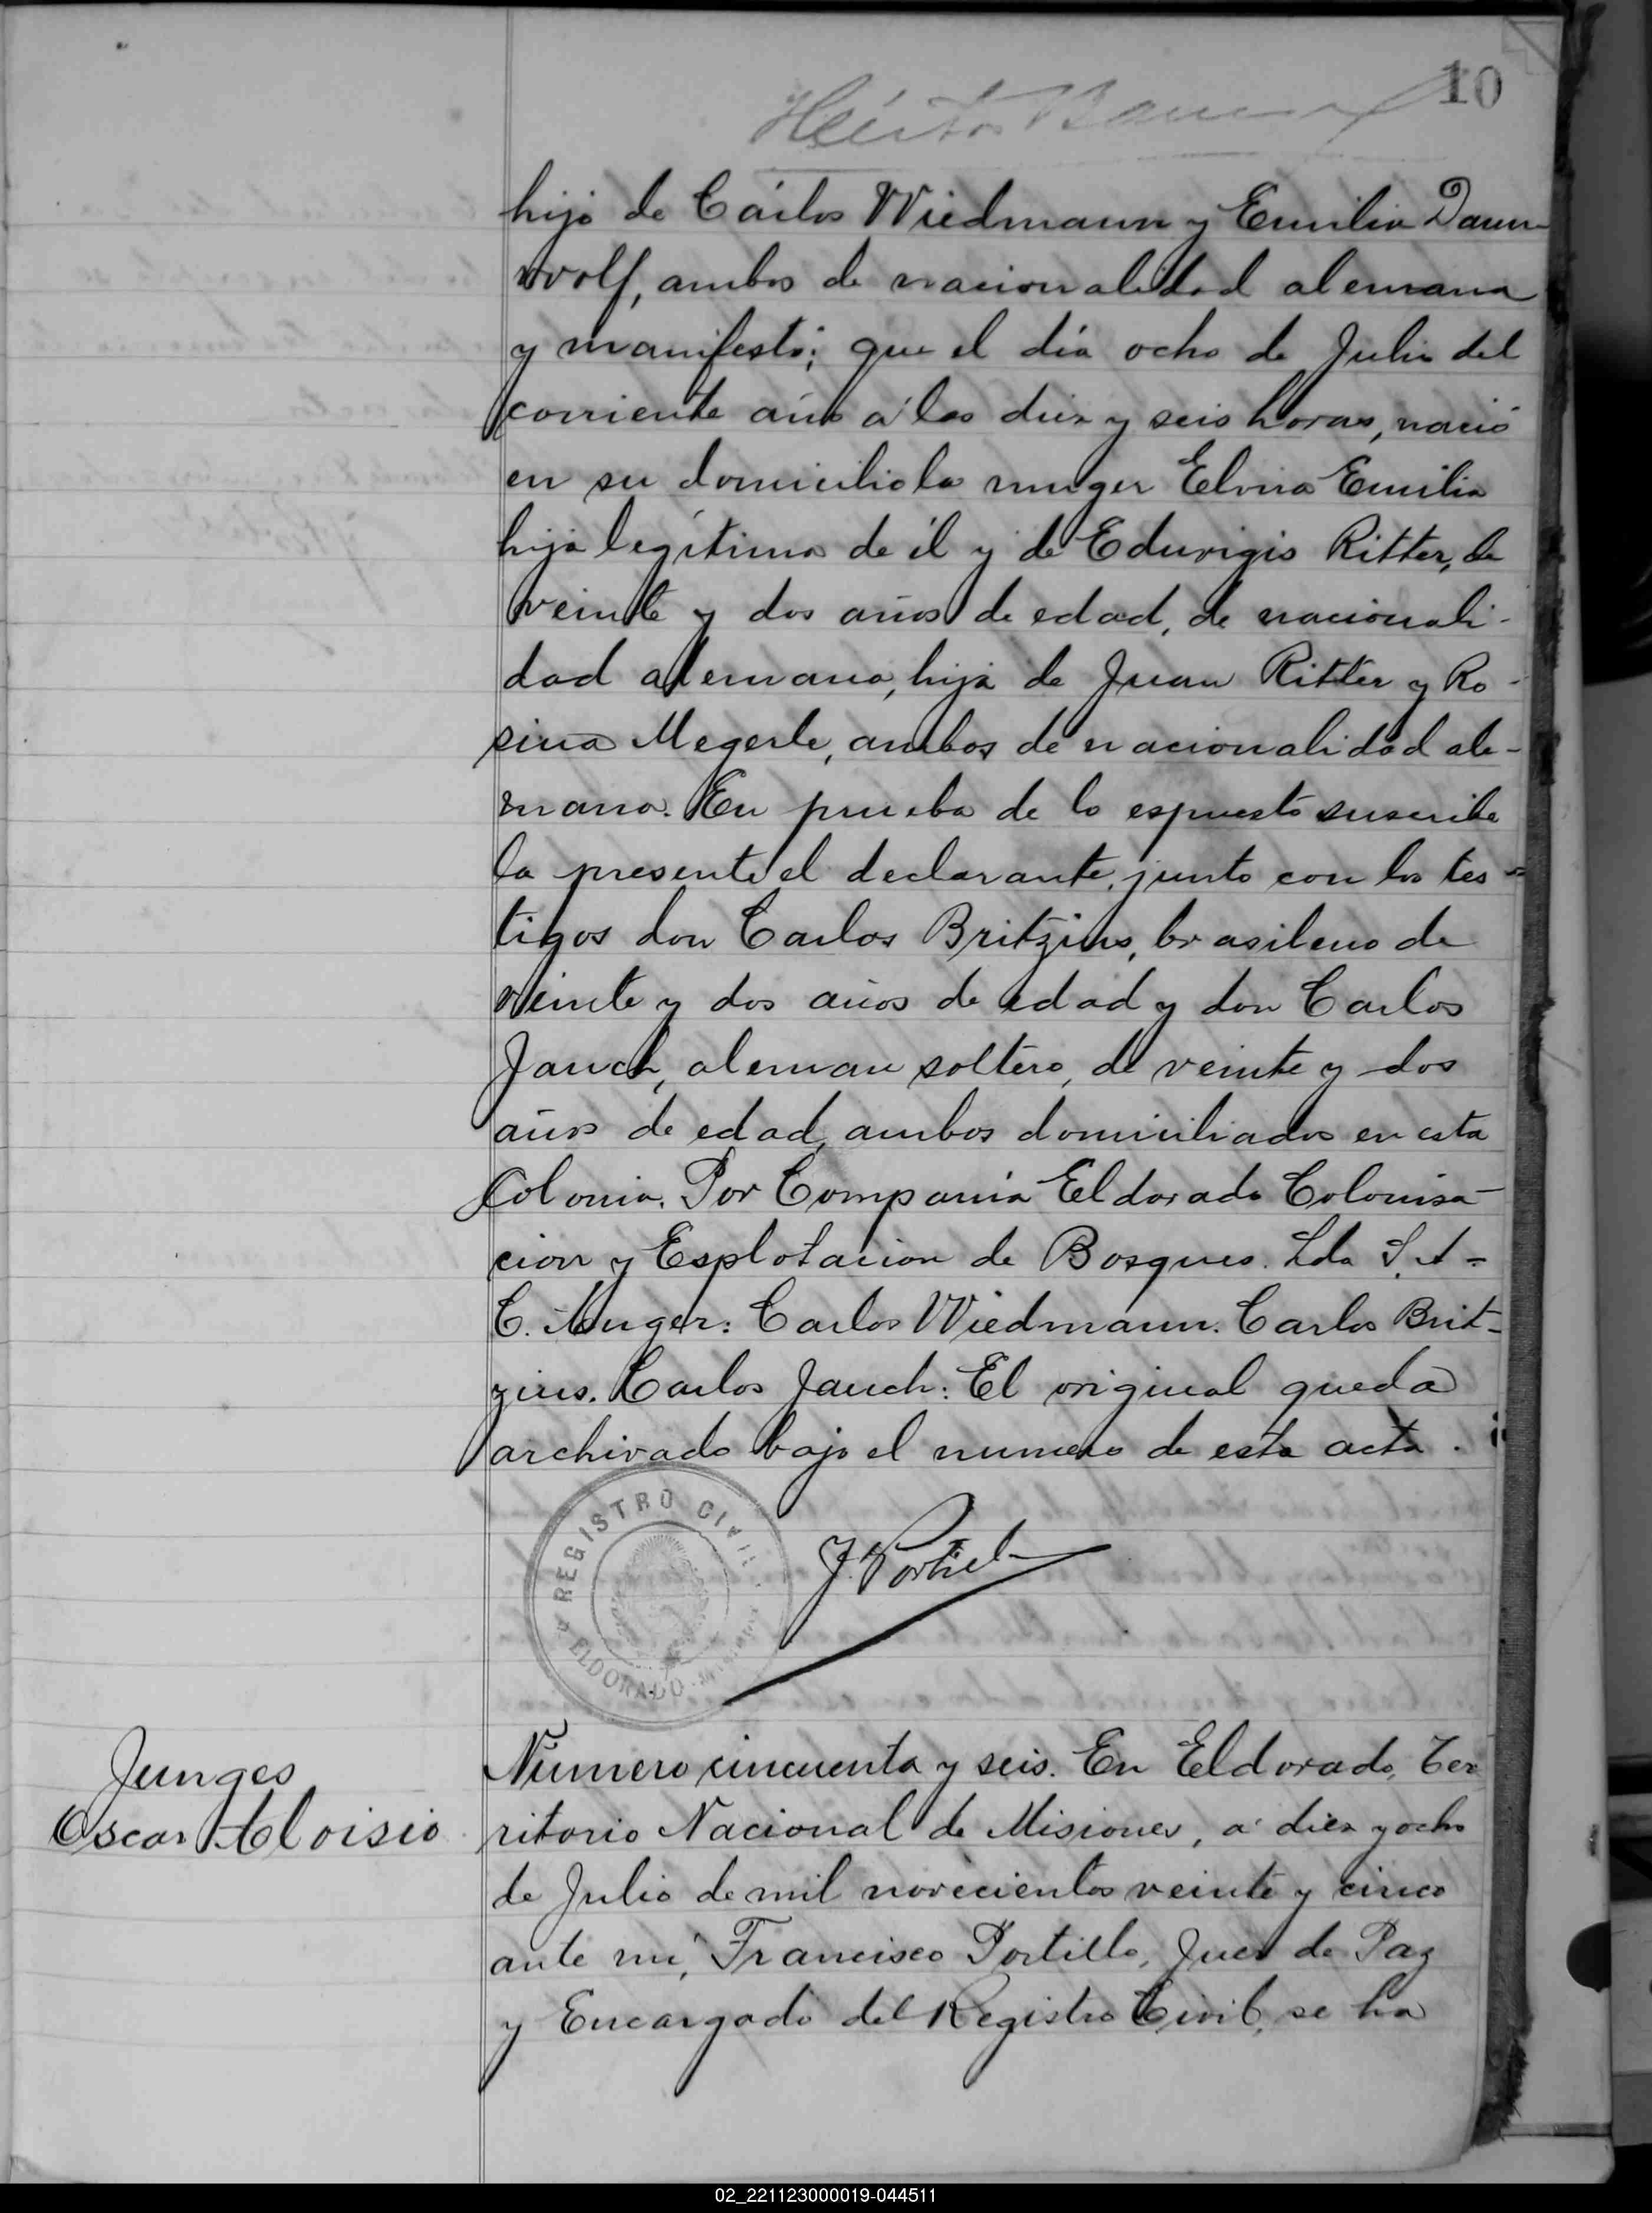 10
hijo de Cárlos Wiedmann y Emilia Daun-
wolf, ambos de nacionalidad alemana
y manifestó; que el dia ocho de Julio del
corriente año á las diez y seis horas, nació
en su domicilio la muger Elvira Emilia
hija legítima de él y de Eduvigis Ritter, de
veinte y dos años de edad, de nacionali-
dad alemana, hija de Juan Ritter y Ro-
sina Megerle, ambos de nacionalidad ale-
mana. En prueba de lo espuesto suscribe
la presente el declarante, junto con los tes-
tigos don Carlos Britzius, brasileno de
veinte y dos años de edad y don Carlos
Jauch, aleman soltero, de veinte y dos
años de edad, ambos domiciliados en esta
Colonia. Por Compania Eldorado Colonisa-
cion y Esplotacion de Bosques. Lda S. A-
C. Muger: Carlos Wiedmann. Carlos Brit-
zius. Carlos Jauch: El original queda
archivado bajo el numero de esta acta.
REGISTRO CIVIL
ELDORADO - Misiones
J. Portiel
Junges
Oscar Aloisio
Número cincuenta y seis. En Eldorado, Ter
ritorio Nacional de Misiones, á diez y ocho
de Julio de mil novecientos veinte y cinco
ante mí, Francisco Portillo, Juez de Paz
y Encargado del Registro Civil, se ha
02_221123000019-044511